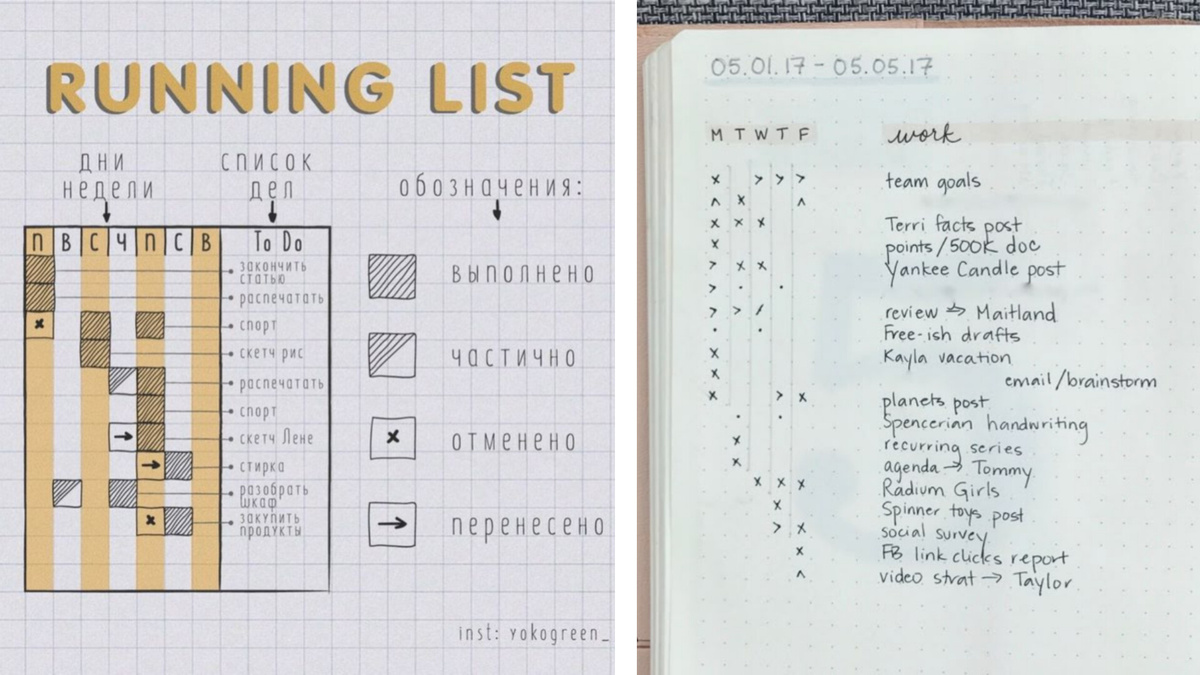 RUNNING LIST
ДНИ
НЕДЕЛИ
СПИСОК
ДЕЛ
обозначения:
П В С Ч П С В To Do
закончить
статью
распечатать
спорт
скетч рис
распечатать
спорт
скетч Лене
стирка
разобрать
шкаф
закупить
продукты
выполнено
частично
отменено
перенесено
inst: yokogreen_
05.01.17 - 05.05.17
M T W T F work
team goals
Terri facts post
points/500K doc
Yankee Candle post
review => Maitland
Free-ish drafts
Kayla vacation
email/brainstorm
planets post
Spencerian handwriting
recurring series
agenda → Tommy
Radium Girls
Spinner toys post
social survey
FB link clicks report
video strat → Taylor